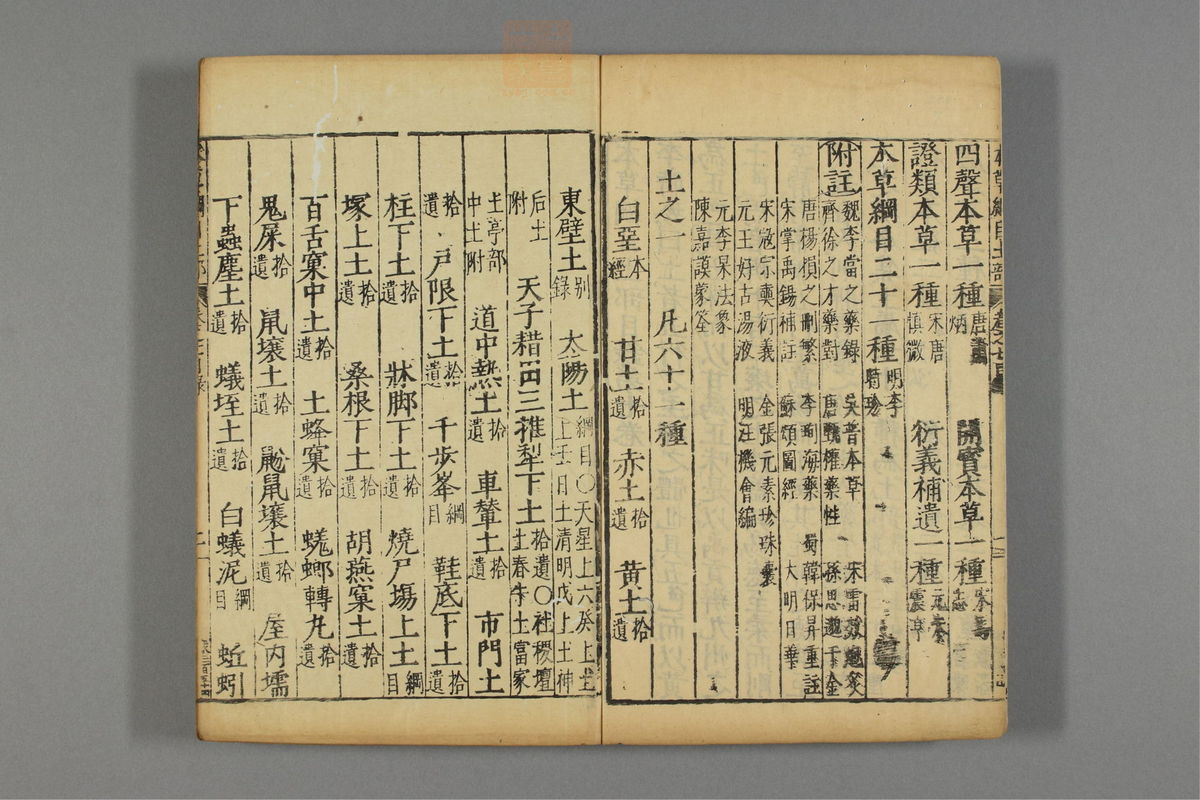 四聲本草一種唐 炳 開寶本草一種宋
證類本草一種宋唐慎微 衍義補遺一種元朱震亨
本草綱目二十一種明李時珍
附註魏李當之藥錄 吳普本草 宋雷斅炮炙
齊徐之才藥對 唐甄權藥性 孫思邈千金
唐楊損之刪繁 李珣海藥 蜀韓保昇重註
宋掌禹錫補註 蘇頌圖經 大明日華
宋寇宗奭衍義 金張元素珍珠囊
元王好古湯液 明汪機會編
元李杲法象
陳嘉謨蒙筌
土之一 凡六十一種
白堊本經 甘土拾遺 赤土拾遺 黃土拾遺
東壁土別錄 太陽土綱目○天星上土 六癸上土 上壬日土 清明戊上土 神
后土附 天子耤田三推犁下土拾遺○社稷壇土 春牛土 富家
土 亭部中土附 道中熱土拾遺 車輦土拾遺 市門土
拾遺 戸限下土拾遺 千步峯綱目 鞋底下土拾遺
柱下土拾遺 牀脚下土拾遺 燒尸場上土綱目
塚上土拾遺 桑根下土拾遺 胡燕窠土拾遺
百舌窠中土拾遺 土蜂窠拾遺 蜣蜋轉丸拾遺
鬼屎拾遺 鼠壤土拾遺 鼢鼠壤土拾遺 屋內壖
下蟲塵土拾遺 蟻垤土拾遺 白蟻泥綱目 蚯蚓